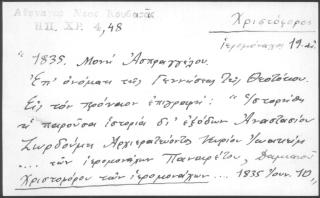 Ἀθηναγ. Νεος Κουβαρᾶς
ΗΠ. ΧΡ. 4,48
Χριστόφορος
ἱερομόναχος 19 αἰ.
"1835. Μονή Ἀσπραγγέλου.
Ἐπ' ὀνόματι τῆς Γεννήσεως τῆς Θεοτόκου.
Εἰς τόν πρόναον ἐπιγραφή: "Ἱστορήθη
ἡ παροῦσα ἱστορία δι' ἐξόδων Ἀναστασίου
Ἀρχιερατεύοντος Κυρίου Ἰωαννικίου
... τῶν ἱερομονάχων Παναρέτου, Δαμιανοῦ
Χριστοφόρου τῶν ἱερομονάχων ... 1835 Ἰουν. 10"